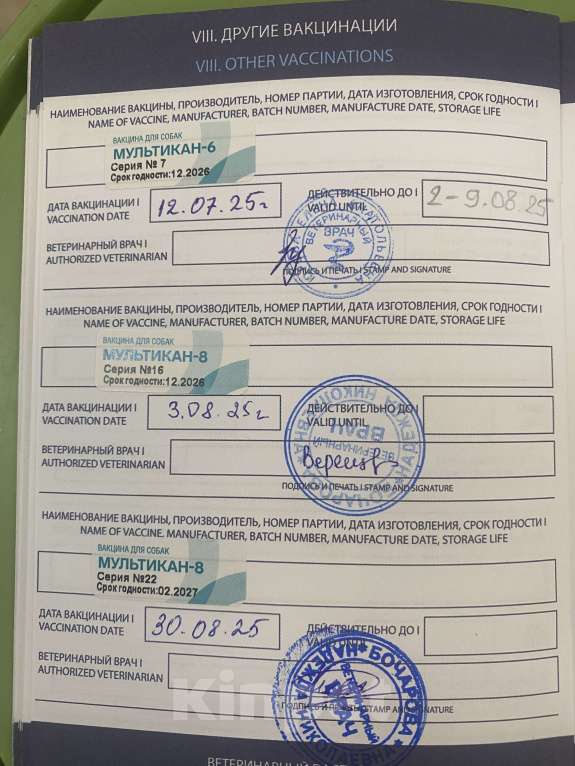 VIII. ДРУГИЕ ВАКЦИНАЦИИ
VIII. OTHER VACCINATIONS
НАИМЕНОВАНИЕ ВАКЦИНЫ, ПРОИЗВОДИТЕЛЬ, НОМЕР ПАРТИИ, ДАТА ИЗГОТОВЛЕНИЯ, СРОК ГОДНОСТИ I
NAME OF VACCINE, MANUFACTURER, BATCH NUMBER, MANUFACTURE DATE, STORAGE LIFE
ВАКЦИНА ДЛЯ СОБАК
МУЛЬТИКАН-6
Серия № 7
Срок годности:12.2026
ДАТА ВАКЦИНАЦИИ I
VACCINATION DATE
12.07.25г
ДЕЙСТВИТЕЛЬНО ДО I
VALID UNTIL
2-9.08.25
ВЕТЕРИНАРНЫЙ ВРАЧ I
AUTHORIZED VETERINARIAN
ВЕТЕРИНАРНЫЙ
ВРАЧ
ПОДПИСЬ И ПЕЧАТЬ I STAMP AND SIGNATURE
НАИМЕНОВАНИЕ ВАКЦИНЫ, ПРОИЗВОДИТЕЛЬ, НОМЕР ПАРТИИ, ДАТА ИЗГОТОВЛЕНИЯ, СРОК ГОДНОСТИ I
NAME OF VACCINE, MANUFACTURER, BATCH NUMBER, MANUFACTURE DATE, STORAGE LIFE
ВАКЦИНА ДЛЯ СОБАК
МУЛЬТИКАН-8
Серия №16
Срок годности:12.2026
ДАТА ВАКЦИНАЦИИ I
VACCINATION DATE
3.08.25г
ДЕЙСТВИТЕЛЬНО ДО I
VALID UNTIL
ВЕТЕРИНАРНЫЙ ВРАЧ I
AUTHORIZED VETERINARIAN
БОЧАРОВА НАДЕЖДА НИКОЛАЕВНА
ВЕТЕРИНАРНЫЙ
ВРАЧ
ПОДПИСЬ И ПЕЧАТЬ I STAMP AND SIGNATURE
НАИМЕНОВАНИЕ ВАКЦИНЫ, ПРОИЗВОДИТЕЛЬ, НОМЕР ПАРТИИ, ДАТА ИЗГОТОВЛЕНИЯ, СРОК ГОДНОСТИ I
NAME OF VACCINE. MANUFACTURER, BATCH NUMBER, MANUFACTURE DATE, STORAGE LIFE
ВАКЦИНА ДЛЯ СОБАК
МУЛЬТИКАН-8
Серия №22
Срок годности:02.2027
ДАТА ВАКЦИНАЦИИ I
VACCINATION DATE
30.08.25
ДЕЙСТВИТЕЛЬНО ДО I
VALID UNTIL
ВЕТЕРИНАРНЫЙ ВРАЧ I
AUTHORIZED VETERINARIAN
БОЧАРОВА НАДЕЖДА НИКОЛАЕВНА
ВЕТЕРИНАРНЫЙ
ВРАЧ
ПОДПИСЬ И ПЕЧАТЬ I STAMP AND SIGNATURE